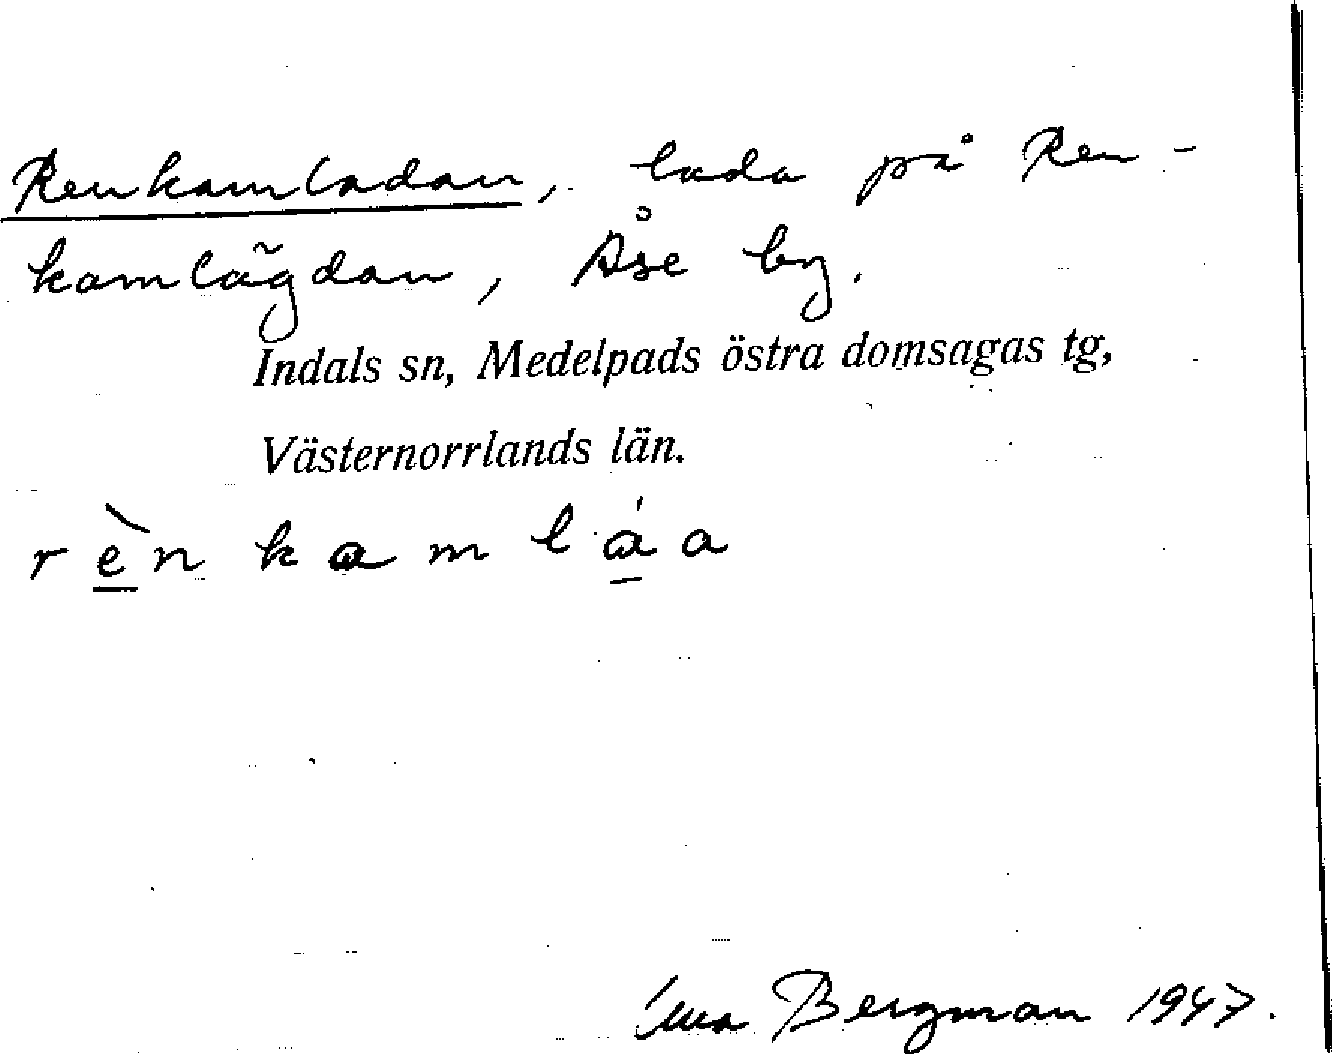 Renkamladan, lada på Ren-
kamlägdan, Åse by.
Indals sn, Medelpads östra domsagas tg,
Västernorrlands län.
rènkamláa
Bergman 1947.